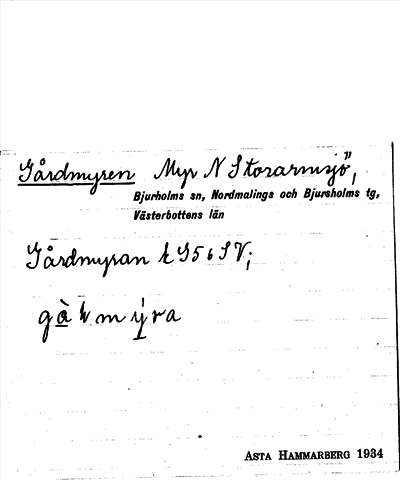 Gårdmyren Myr N Storarmsjö",
Bjurholms sn, Nordmalings och Bjurholms tg,
Västerbottens län
Gårdmyran k S56SV;
gà mýra
ASTA HAMMARBERG 1934